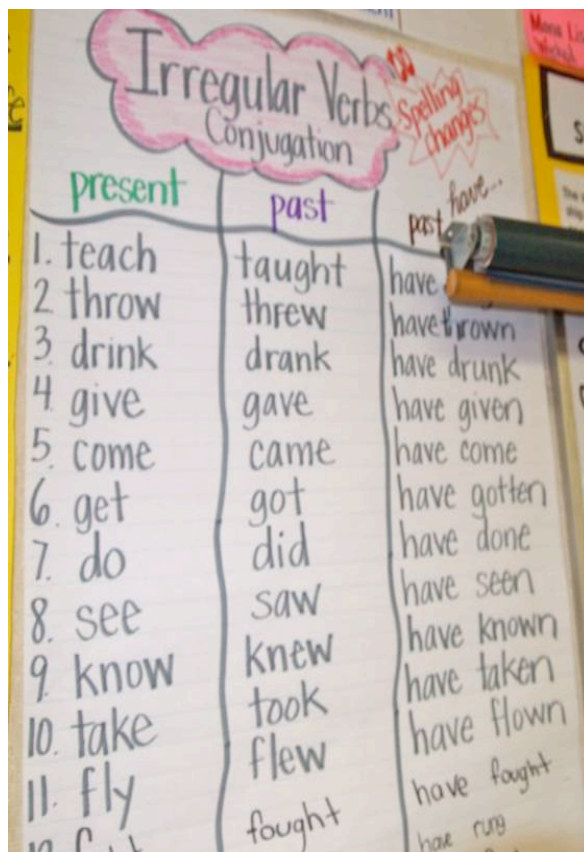 Irregular Verbs
Conjugation
Spelling
changes
present past past have...
1. teach taught have
2 throw threw have thrown
3. drink drank have drunk
4. give gave have given
5. come came have come
6. get got have gotten
7. do did have done
8. see saw have seen
9. know knew have known
10. take took have taken
11. fly flew have flown
fought have fought
have rung